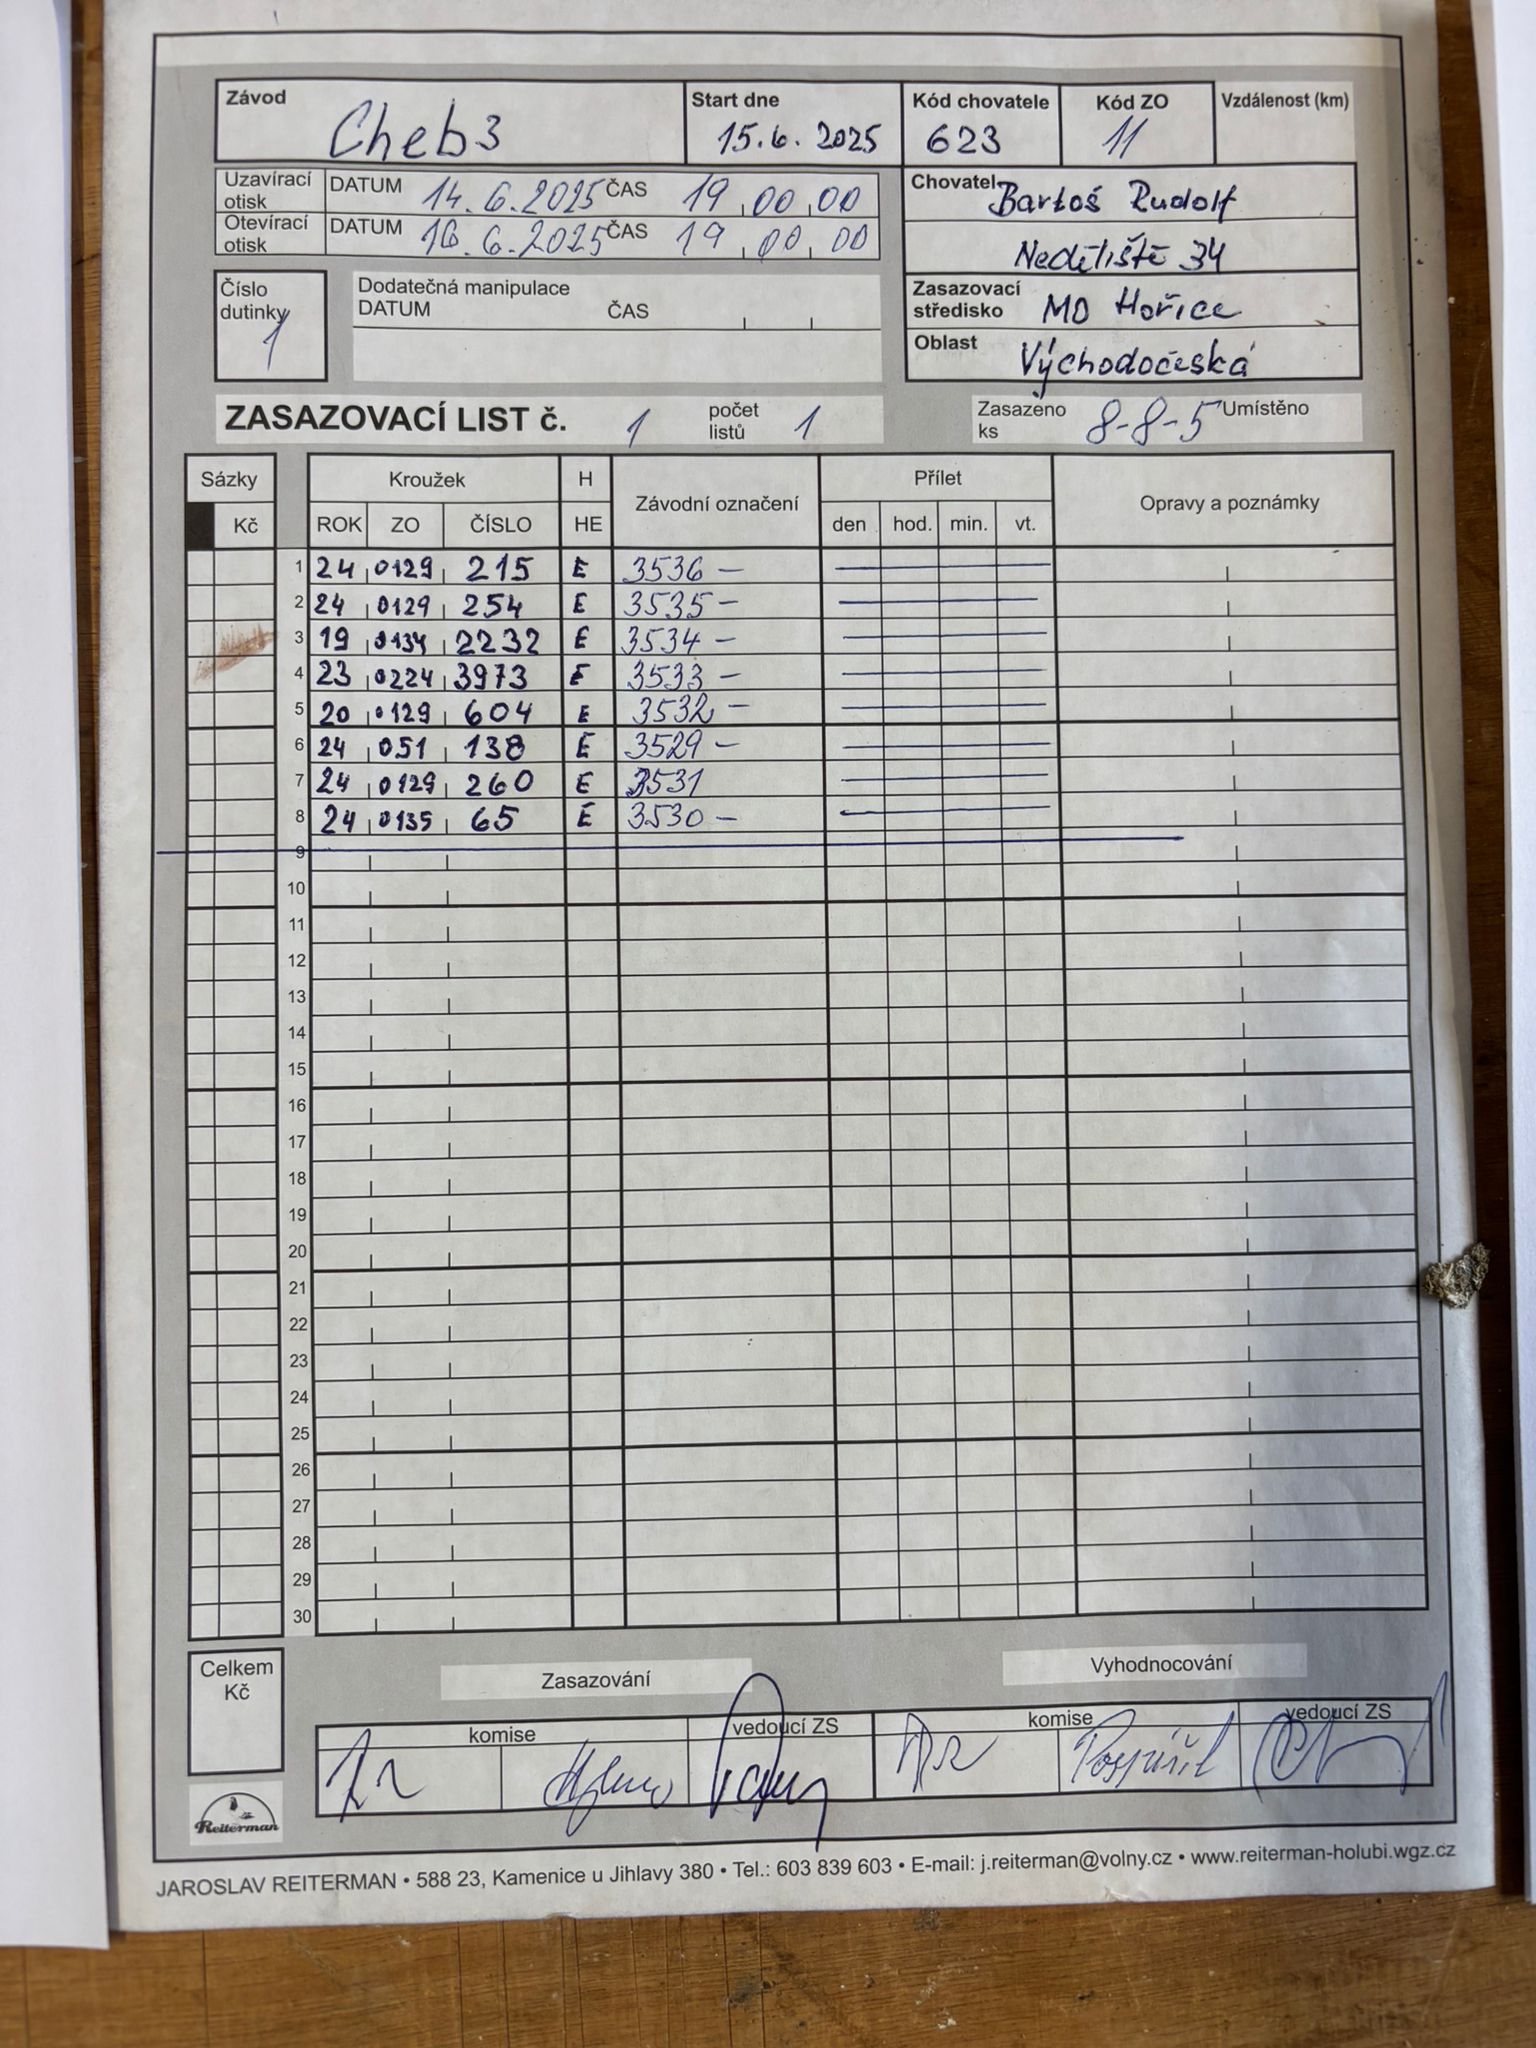 Závod Cheb3 Start dne 15.6.2025 Kód chovatele 623 Kód ZO 11 Vzdálenost (km)
Uzavírací otisk DATUM 14.6.2025 ČAS 19 00 00
Otevírací otisk DATUM 16.6.2025 ČAS 19 00 00
Chovatel Bartoš Rudolf
Neděliště 34
Zasazovací středisko MO Hořice
Oblast Východočeská
Číslo dutinky 1
Dodatečná manipulace
DATUM ČAS
ZASAZOVACÍ LIST č. 1 počet listů 1 Zasazeno ks 8-8-5 Umístěno
Sázky Kroužek H Závodní označení Přílet Opravy a poznámky
Kč ROK ZO ČÍSLO HE den hod. min. vt.
1 24 0129 215 E 3536 —
2 24 0129 254 E 3535 —
3 19 0134 2232 E 3534 —
4 23 0224 3973 E 3533 —
5 20 0129 604 E 3532 —
6 24 051 138 E 3529 —
7 24 0129 260 E 3531
8 24 0135 65 E 3530 —
9
10
11
12
13
14
15
16
17
18
19
20
21
22
23
24
25
26
27
28
29
30
Celkem Kč
Zasazování Vyhodnocování
komise vedoucí ZS komise vedoucí ZS
Pospíšil
Reiterman
JAROSLAV REITERMAN • 588 23, Kamenice u Jihlavy 380 • Tel.: 603 839 603 • E-mail: j.reiterman@volny.cz • www.reiterman-holubi.wgz.cz